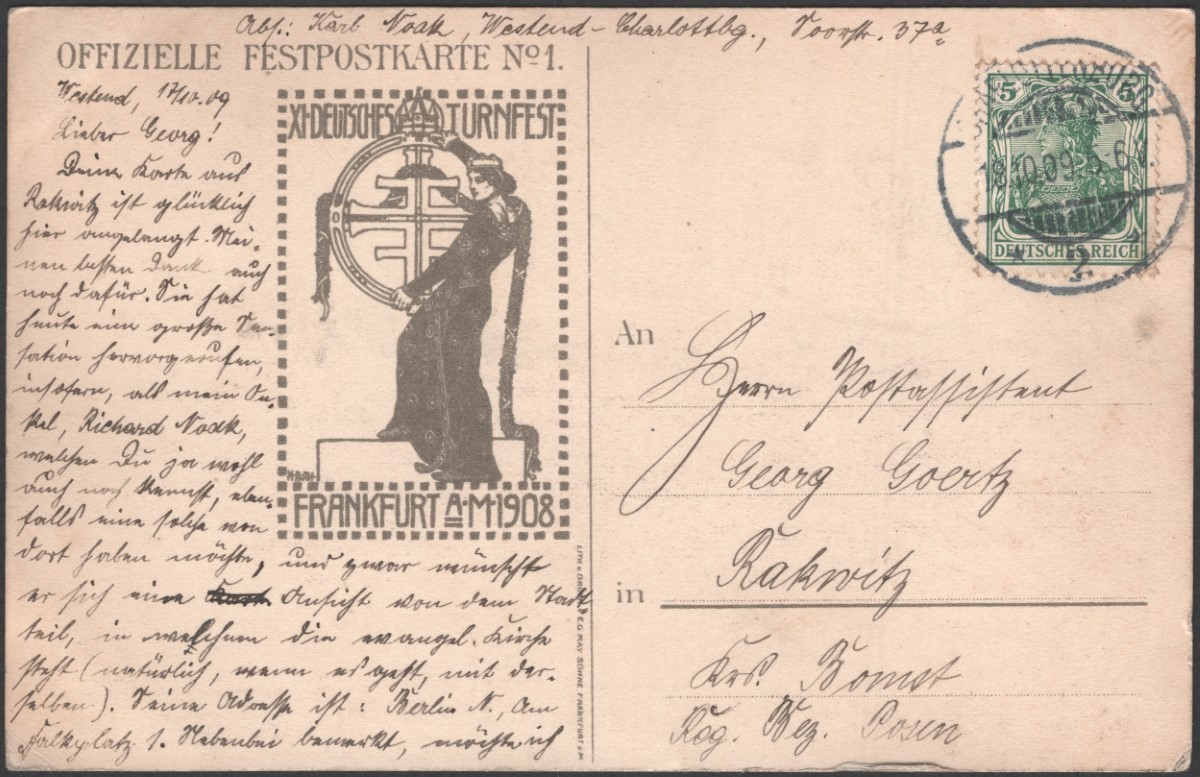 Abs.: Karl Noak, Westend-Charlottbg., Soorstr. 37a
OFFIZIELLE FESTPOSTKARTE No 1.
Westend, 17/10.09
Lieber Georg!
Deine Karte aus
Rakwitz ist glücklich
hier angelangt. Mei-
nen besten Dank auch
noch dafür. Sie hat
heute eine große Sen-
sation hervorgerufen,
insofern, als mein On-
kel, Richard Noak,
welchen Du ja wohl
auch noch kennst, eben-
falls eine solche von
dort haben möchte, und zwar wünscht
er sich eine Ansicht von dem Stadt-
teil, in welchem die evangel. Kirche
steht (natürlich, wenn es geht, mit der-
selben). Seine Adresse ist: Berlin N., Am
Falkplatz 1. Nebenbei bemerkt, möchte ich
XI. DEUTSCHES TURNFEST
FRANKFURT A·M·1908
LITH. u. DRUCK v. E.G. MAY SÖHNE FRANKFURT a M
5 5
DEUTSCHES REICH
18.10.09. 5-6
2
An
Herrn Postassistent
Georg Goertz
in Rakwitz
Krs. Bomst
Rög. Bez. Posen